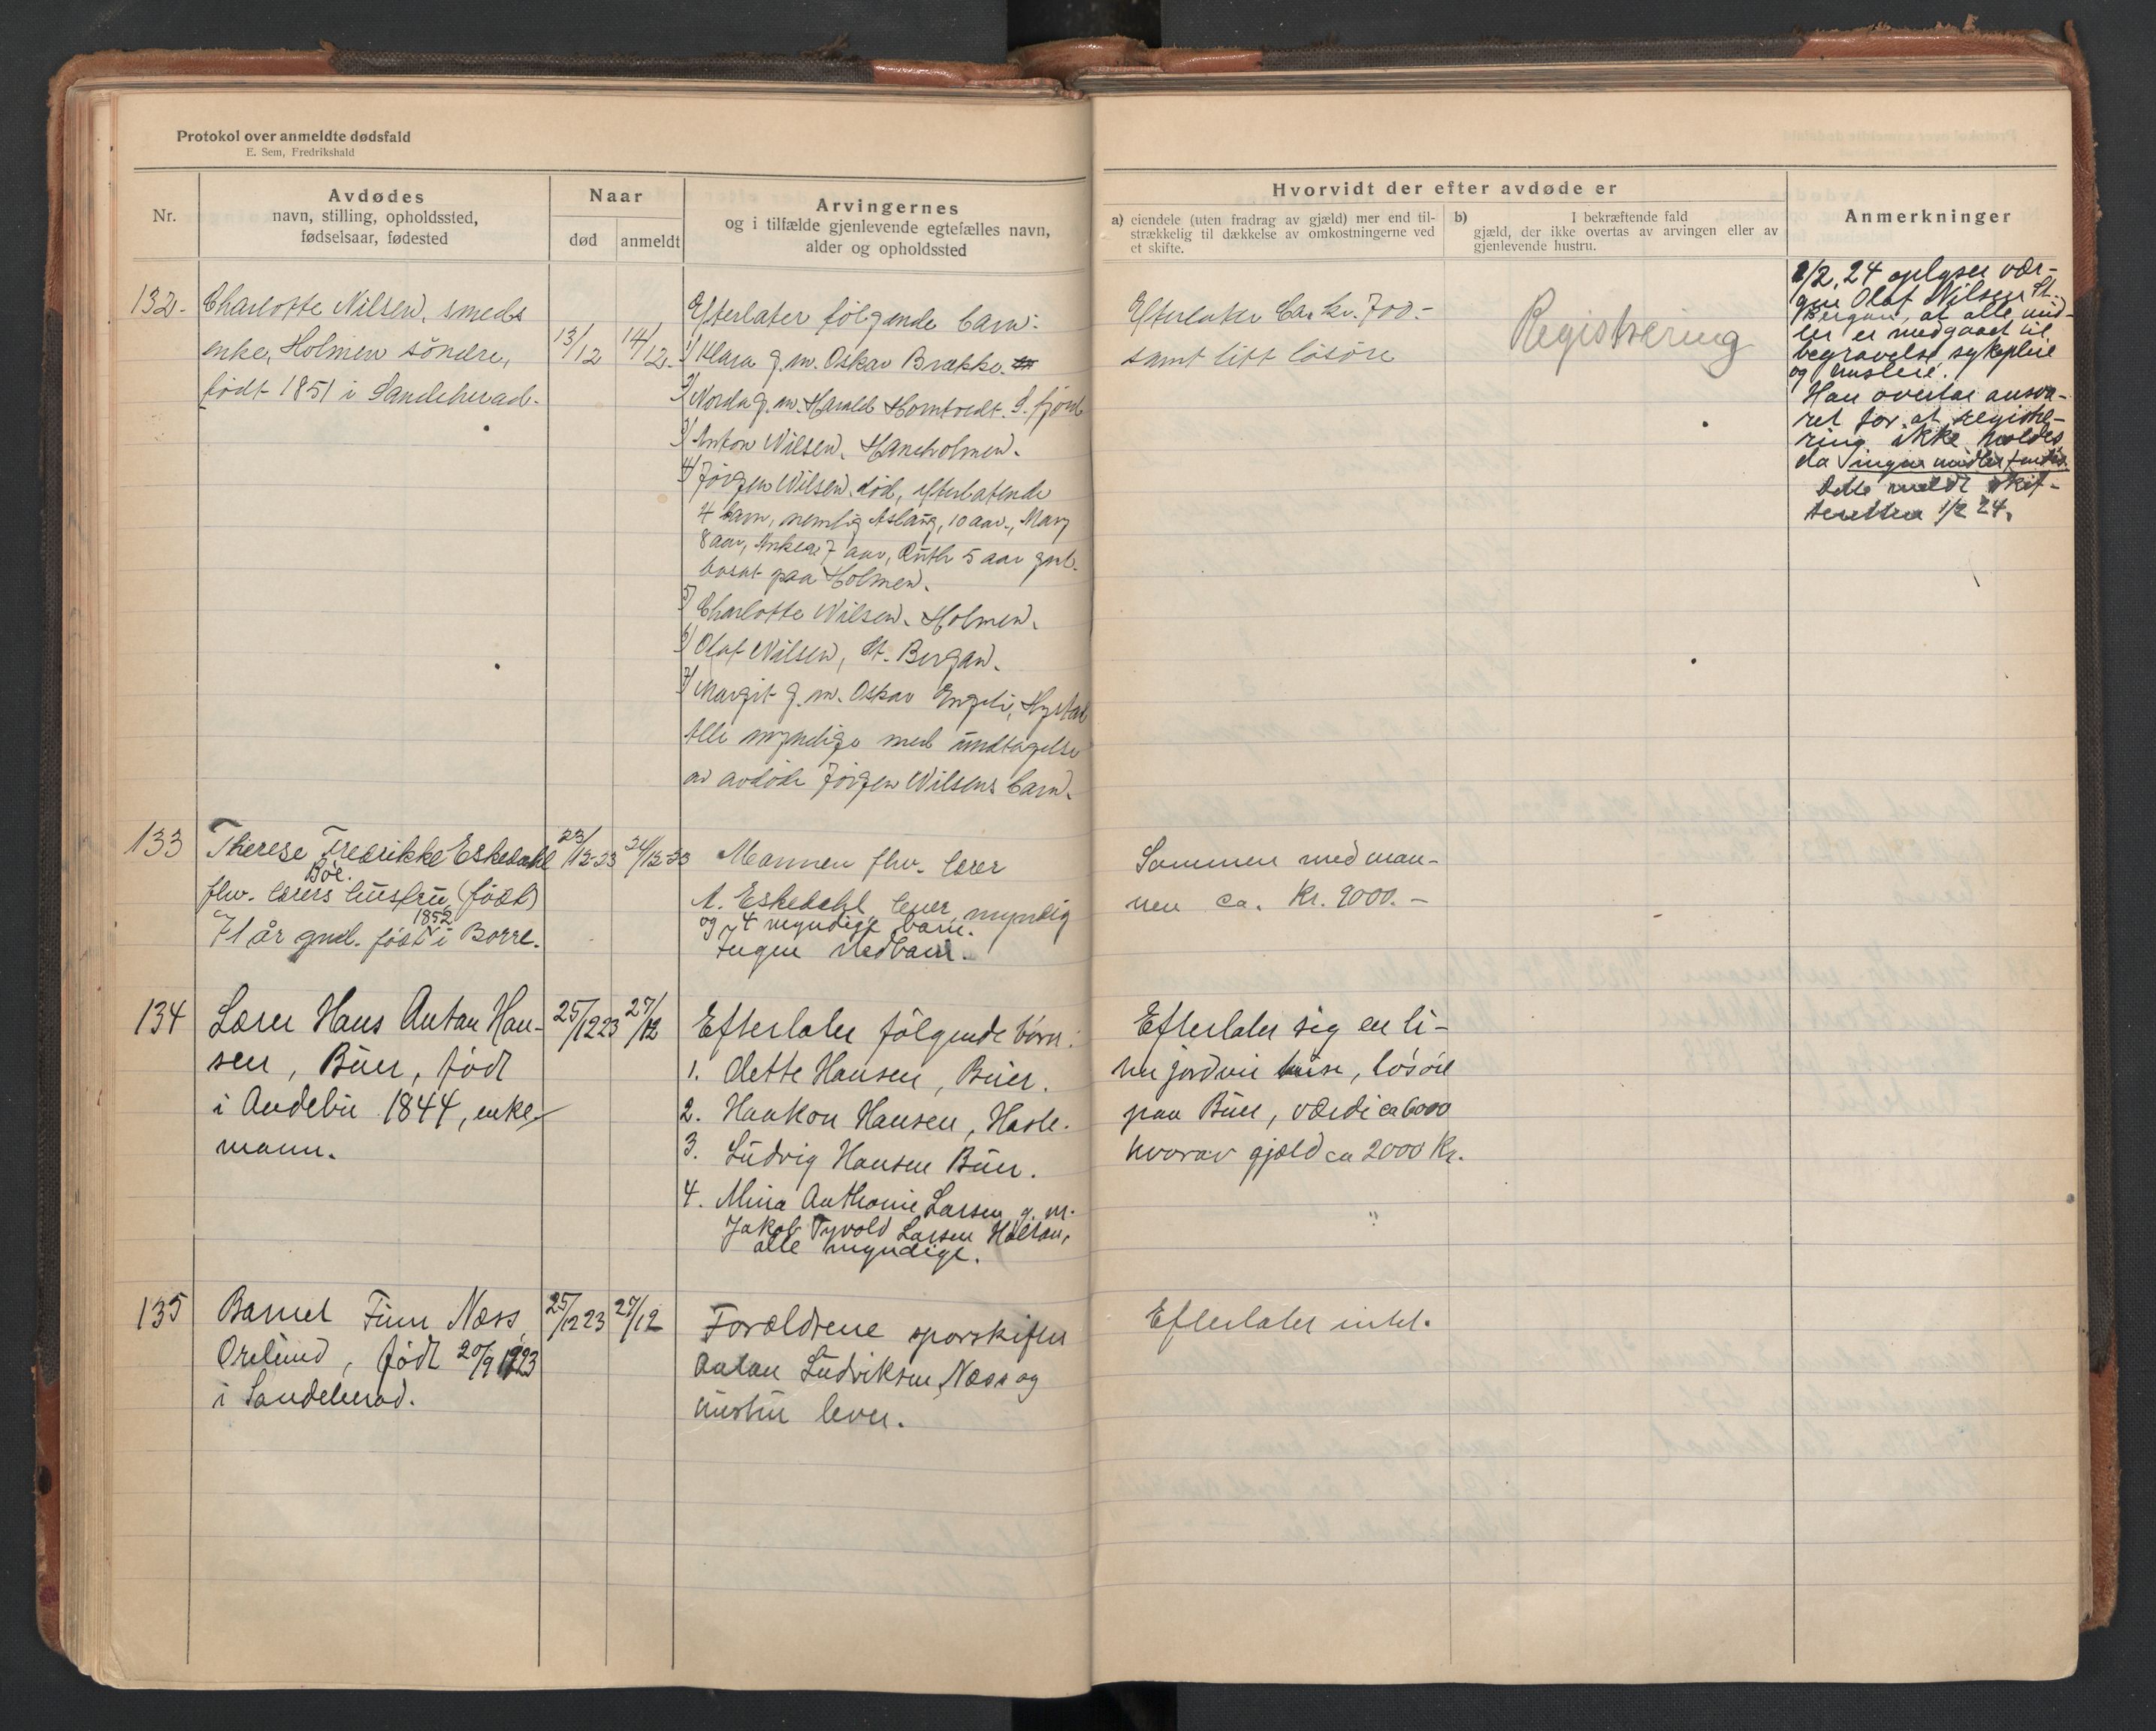 Protokol over anmeldte dødsfald
E. Sem, Fredrikshald
Nr.
Avdødes
navn, stilling, opholdssted,
fødselsaar, fødested
Naar
død
anmeldt
Arvingernes
og i tilfælde gjenlevende egtefælles navn,
alder og opholdssted
Hvorvidt der efter avdøde er
a) eiendele (uten fradrag av gjæld) mer end til-
strækkelig til dækkelse av omkostningerne ved
et skifte.
b) I bekræftende fald
gjæld, der ikke overtas av arvingen eller av
gjenlevende hustru.
Anmerkninger
132.
Charlotte Nilsen, smeds
enke, Holmen söndre,
født 1851 i Sandeherad.
13/12
14/12.
Efterlater følgende barn:
1) Klara g. m. Oskar Brække.
2) Norda g. m. Harald Horntvedt. S. fjord
3) Anton Nilsen. Haneholmen.
4) Jörgen Nilsen, död, efterlatende
4 barn, nemlig Aslaug, 10 aar, Mary
8 aar, Anker 7 aar, Ruth 5 aar gml.
bosat paa Holmen.
5) Charlotte Nilsen. Holmen.
6) Olaf Nilsen, St. Bergan.
7) Margit g. m. Oskar Engeli, Hystad
Alle myndige med undtagelse
av avdöde Jörgen Nilsens barn.
Efterlater Ca. kr. 700.-
samt litt lösöre
Registrering
2/2, 24 oplyser vær-
gen Olaf Nilsen St.
Bergan, at alle mid-
ler er medgaaet til
begravelse, sykepleie
og husleie.
Han overtar ansva-
ret for at registre-
ring ikke holdes
da ingen midler findes.
Dette meldt skif-
teretten 1/2 24.
133
Therese Fredrikke Eskedahl
Böe.
fhv. lærers hustru (født)
1852
71 år gml. født i Borre.
23/12-23
24/12-23
Mannen fhv. lærer
A. Eskedahl lever, myndig
og 4 myndige barn.
Ingen nedbarn.
Sammen med man-
nen ca. Kr. 9000.-
134
Lærer Hans Anton Han-
sen, Buer, født
i Andebu 1844, enke-
mann.
25/12 23
27/12
Efterlater følgende børn:
1. Olette Hansen, Buer.
2. Haakon Hansen, Hasle.
3. Ludvig Hansen Buer.
4. Mina Anthonie Larsen g. m.
Jakob Tyvold Larsen Holtan,
alle myndige.
Efterlater sig en li-
ten jordvei huse, løsøre
paa Buer, værdi ca 6000
hvorav gjæld ca 2000 Kr.
135
Barnet Finn Næss,
Orelund, født 20/9 1923
i Sandeherad.
25/12 23
27/12
Forældrene sporskifter
Anton Ludviksen Næss og
hustru lever.
Efterlater intet.